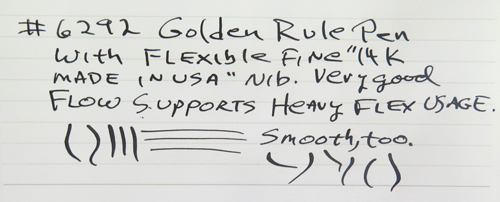 #6292 Golden Rule Pen
With FLEXIBLE FINE "14K
MADE IN USA" Nib. Very good
FLOW SUPPORTS HEAVY FLEX USAGE.
Smooth, too.